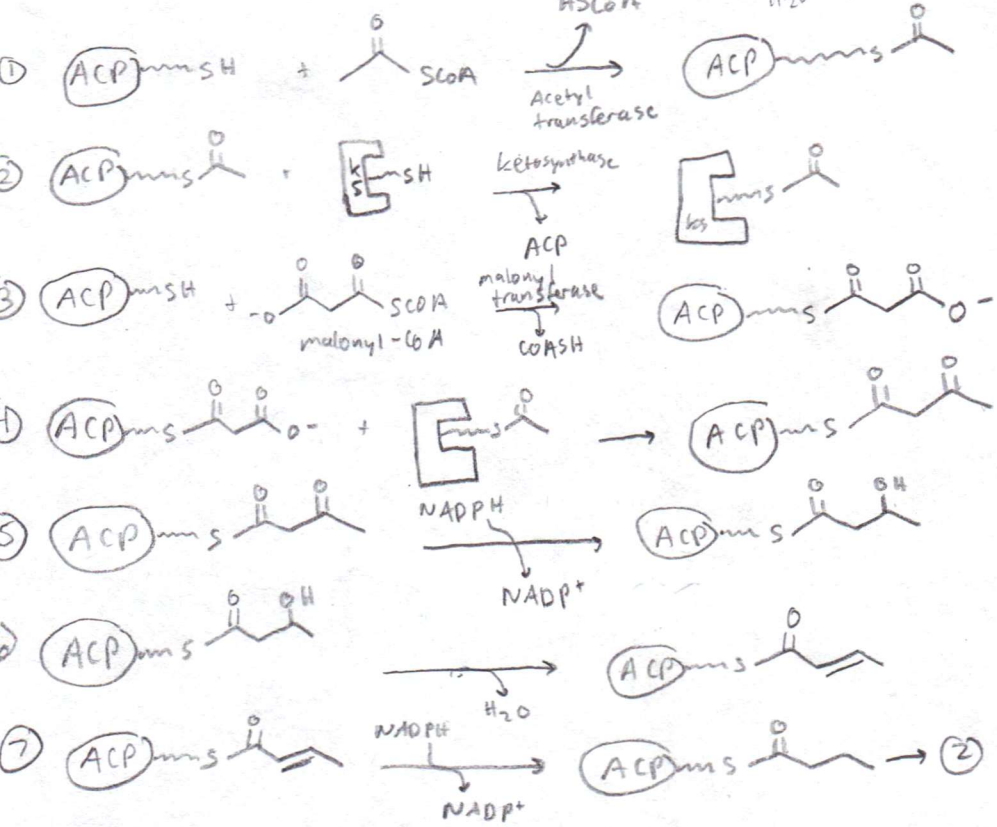 HSCoA H2O
① ACP SH + O SCoA Acetyl transferase ACP S O
② ACP S O · KS SH ketosynthase ACP kS S O
③ ACP SH + -O O O SCOA malonyl-CoA malonyl transferase COASH ACP S O O O-
4 ACP S O O O- + S O ACP S O O
5 ACP S O O NADPH NADP+ ACP S O OH
6 ACP S O OH H2O ACP S O
⑦ ACP S O NADPH NADP+ ACP S O ②